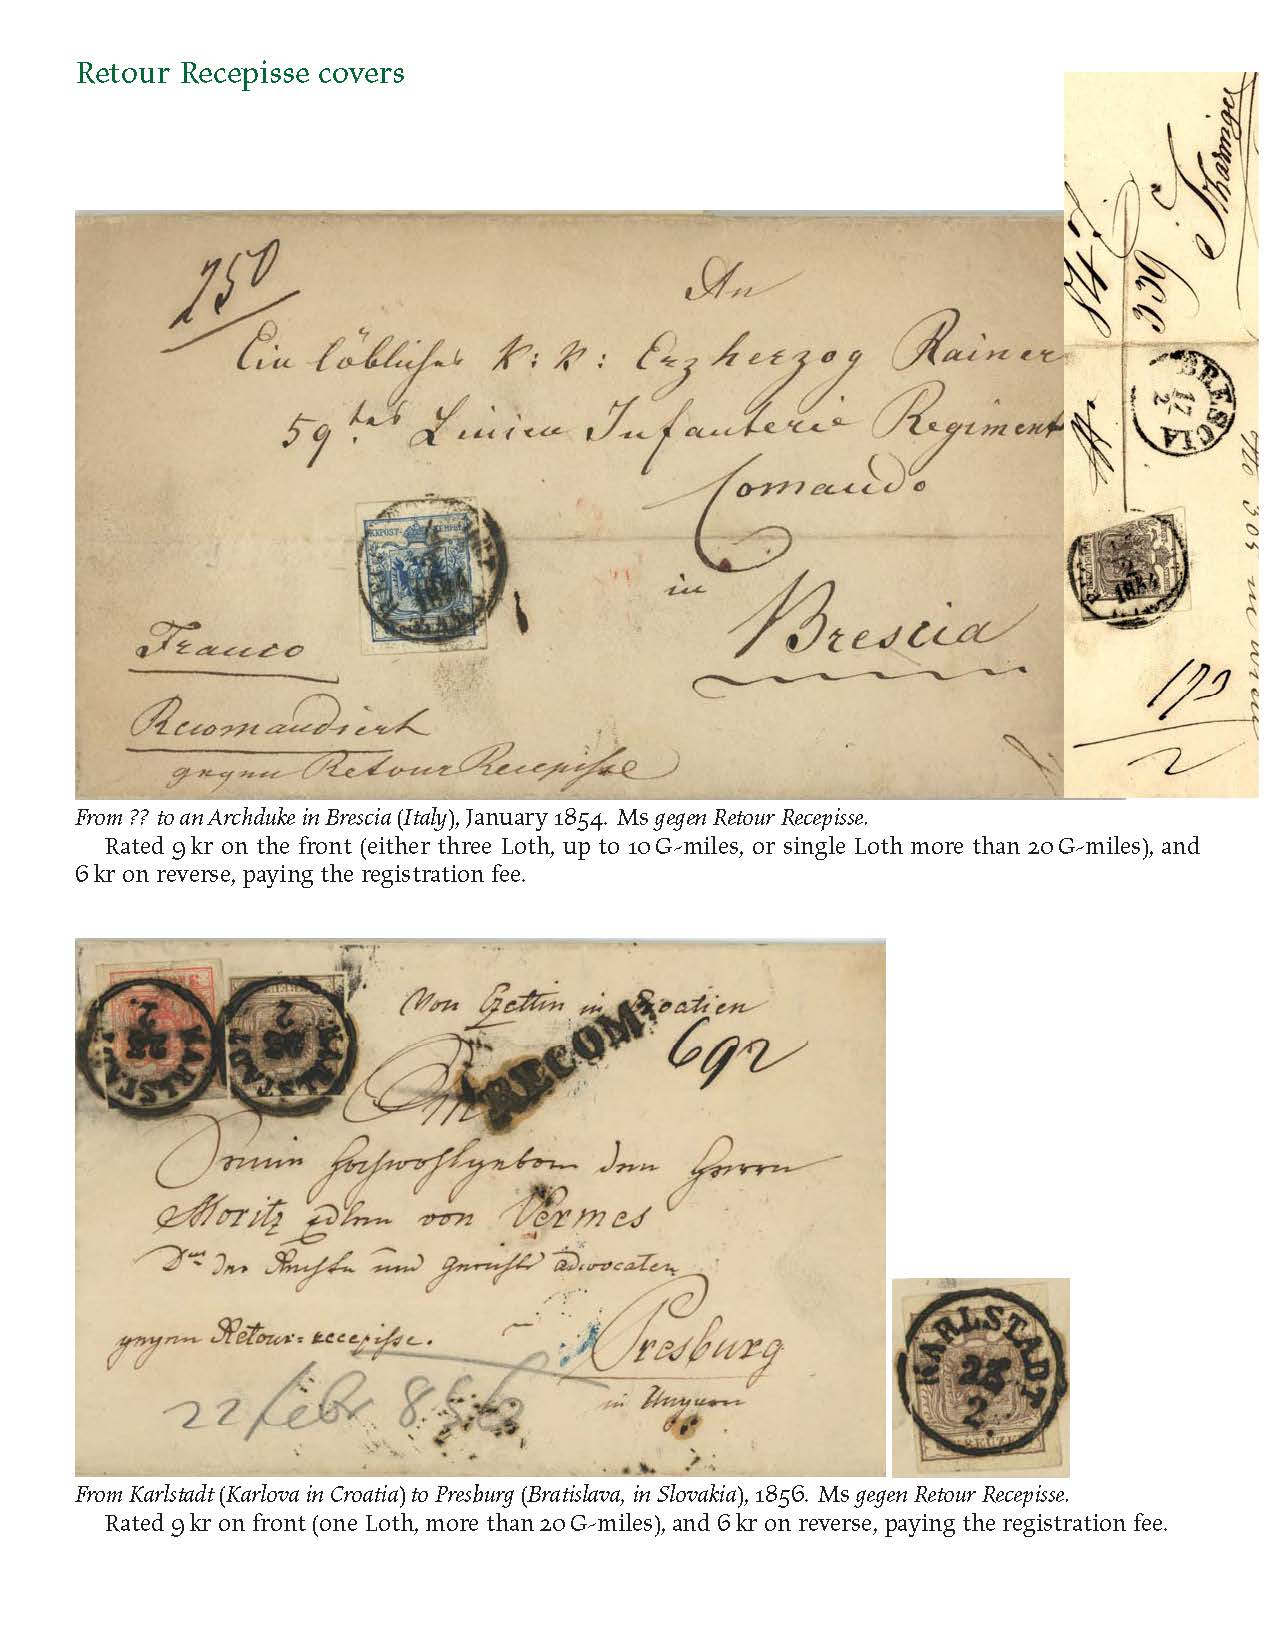 Retour Recepisse covers
250
An
Ein löbliches k: k: Erzherzog Rainer
59tes Linien Infanterie Regiment
Comando
in
Brescia
Franco
Recomandirt
gegen Retour Recepisse
847
339
BRESCIA
17
2
1854
From ?? to an Archduke in Brescia (Italy), January 1854. Ms gegen Retour Recepisse.
Rated 9 kr on the front (either three Loth, up to 10 G-miles, or single Loth more than 20 G-miles), and
6 kr on reverse, paying the registration fee.
Von Czettin in Croatien
RECOM.
692
Seiner Hochwohlgeborn dem Herrn
Moritz Edlen von Vermes
Dor der Rechte und Gerichts Advocaten
gegen Retour=recepisse.
Presburg
in Ungarn
22 febr 856
KARLSTADT
23
2.
KARLSTADT
23
2.
KARLSTADT
23
2.
From Karlstadt (Karlova in Croatia) to Presburg (Bratislava, in Slovakia), 1856. Ms gegen Retour Recepisse.
Rated 9 kr on front (one Loth, more than 20 G-miles), and 6 kr on reverse, paying the registration fee.